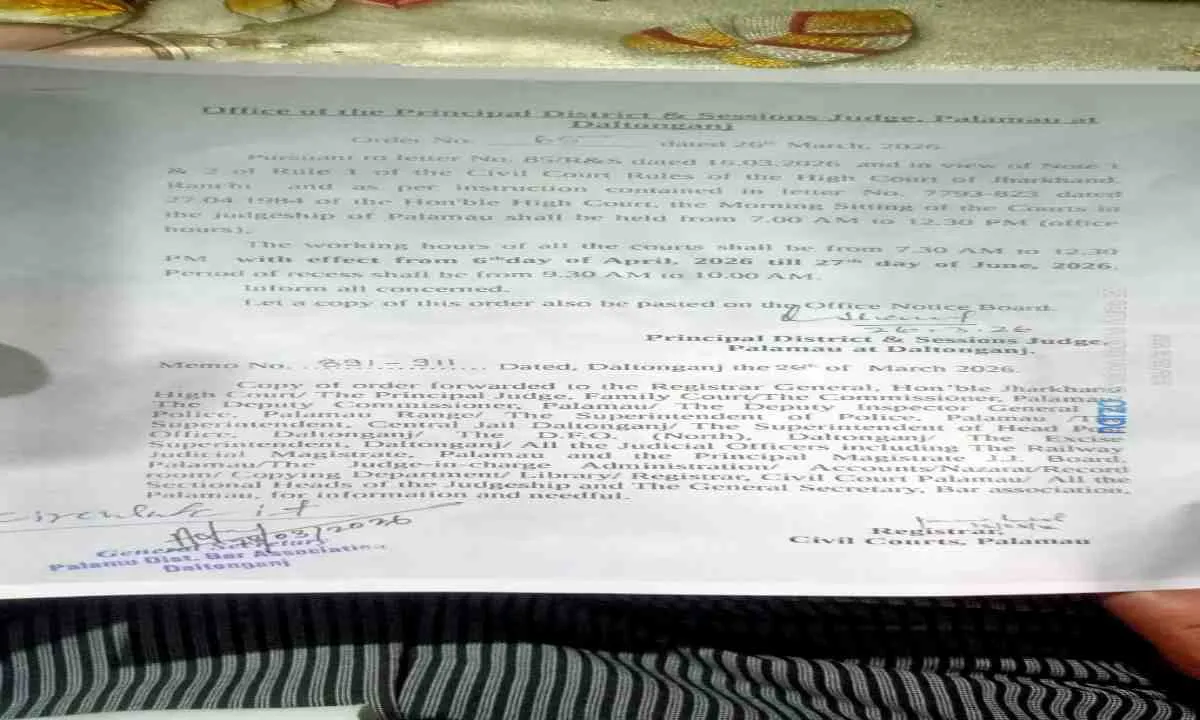 Office of the Principal District & Sessions Judge, Palamau at
Daltonganj
Order No. 65 dated 26th March, 2026
Pursuant to letter No. 85/R&S dated 16.03.2026 and in view of Note 1
& 2 of Rule 1 of the Civil Court Rules of the High Court of Jharkhand,
Ranchi and as per instruction contained in letter No. 7793-823 dated
27.04.1984 of the Hon'ble High Court, the Morning Sitting of the Courts in
the judgeship of Palamau shall be held from 7.00 AM to 12.30 PM (office
hours).
The working hours of all the courts shall be from 7.30 AM to 12.30
PM with effect from 6th day of April, 2026 till 27th day of June, 2026.
Period of recess shall be from 9.30 AM to 10.00 AM.
Inform all concerned.
Let a copy of this order also be pasted on the Office Notice Board.
26.3.26
Principal District & Sessions Judge,
Palamau at Daltonganj.
Memo No. 891-911 Dated, Daltonganj the 26th of March 2026.
Copy of order forwarded to the Registrar General, Hon'ble Jharkhand
High Court/ The Principal Judge, Family Court/The Commissioner, Palamau
The Deputy Commissioner, Palamau/ The Deputy Inspector General
Police, Palamau Range/ The Superintendent of Police, Palamau /The
Superintendent, Central Jail Daltonganj/ The Superintendent of Head
Office, Daltonganj/ The D.F.O. (North), Daltonganj/ The Excise
Superintendent Daltonganj/ All the Judicial Officers including The Railway
Judicial Magistrate, Palamau and the Principal Magistrate J.J. Board
Palamau/The Judge-in-charge Administration/ Accounts/Nazarat/Record
room/Copying Department/ Library/ Registrar, Civil Court Palamau/ All the
Sectional Heads of the Judgeship and The General Secretary, Bar association,
Palamau, for information and needful.
Circulate it
Registrar,
Civil Courts, Palamau
General Secretary
Palamu Dist. Bar Association
Daltonganj